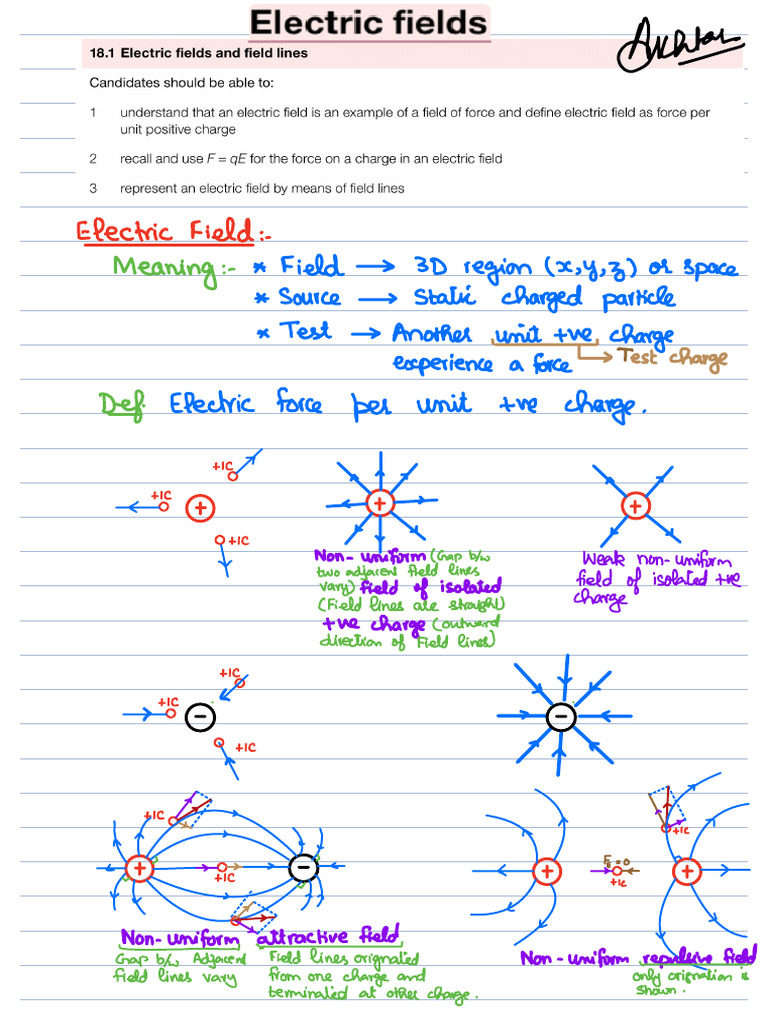 Electric fields
Akhtar
18.1 Electric fields and field lines
Candidates should be able to:
1 understand that an electric field is an example of a field of force and define electric field as force per
unit positive charge
2 recall and use F = qE for the force on a charge in an electric field
3 represent an electric field by means of field lines
Electric Field:-
Meaning:- * Field → 3D region (x,y,z) or space
* Source → Static charged particle
* Test → Another unit +ve charge
experience a force → Test charge
Def. Electric force per unit +ve charge.
+1C
+1C
+
+1C
+
+
Non-uniform (Gap b/w
two adjacent field lines
vary) field of isolated
(Field lines are straight)
+ve charge (outward
direction of Field lines)
Weak non-uniform
field of isolated +ve
charge
+1C
+1C
−
+1C
−
+1C
+
+1C
−
+
F_E = 0
+1C
+1C
+
Non-uniform attractive field
Gap b/w Adjacent
field lines vary
Field lines orignated
from one charge and
terminated at other charge.
Non-uniform repulsive field
only orignation is
shown.